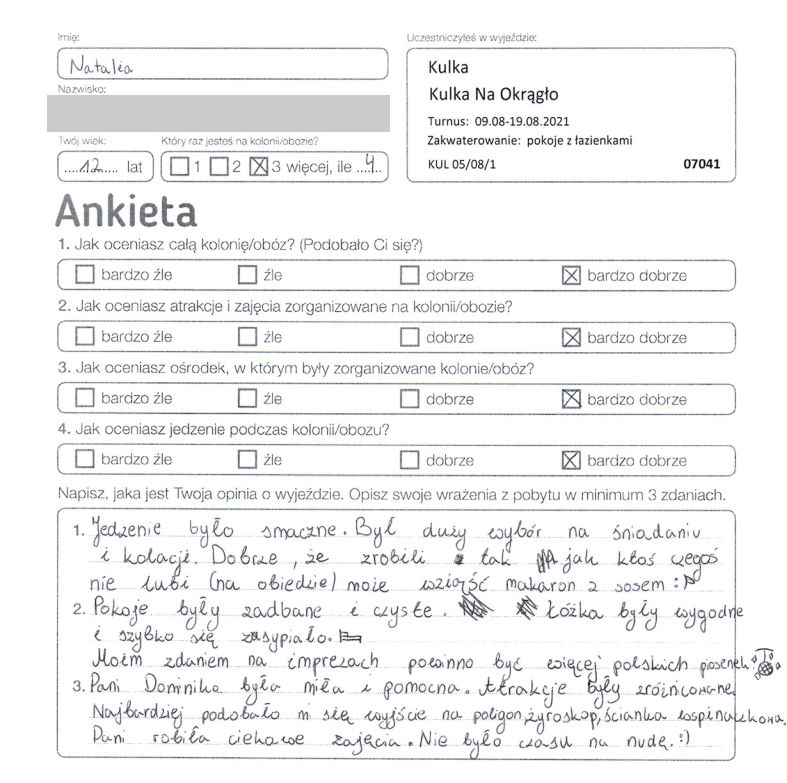 Imię:
Natalia
Nazwisko:
Twój wiek:
12 lat
Który raz jesteś na kolonii/obozie?
1 2 3 więcej, ile 4
Uczestniczyłeś w wyjeździe:
Kulka
Kulka Na Okrągło
Turnus: 09.08-19.08.2021
Zakwaterowanie: pokoje z łazienkami
KUL 05/08/1 07041
Ankieta
1. Jak oceniasz całą kolonię/obóz? (Podobało Ci się?)
bardzo źle źle dobrze bardzo dobrze
2. Jak oceniasz atrakcje i zajęcia zorganizowane na kolonii/obozie?
bardzo źle źle dobrze bardzo dobrze
3. Jak oceniasz ośrodek, w którym były zorganizowane kolonie/obóz?
bardzo źle źle dobrze bardzo dobrze
4. Jak oceniasz jedzenie podczas kolonii/obozu?
bardzo źle źle dobrze bardzo dobrze
Napisz, jaka jest Twoja opinia o wyjeździe. Opisz swoje wrażenia z pobytu w minimum 3 zdaniach.
1. Jedzenie było smaczne. Był duży wybór na śniadaniu
i kolacji. Dobrze, że zrobili tak jak ktoś czegoś
nie lubi (na obiedzie) może wziąść makaron z sosem :P
2. Pokoje były zadbane i czyste. Łóżka były wygodne
i szybko się zasypiało.
Moim zdaniem na imprezach powinno być więcej polskich piosenek.
3. Pani Dominika była miła i pomocna. Atrakcje były zróżnicowane.
Najbardziej podobało mi się wyjście na poligon, żyroskop, ścianka wspinaczkowa.
Pani robiła ciekawe zajęcia. Nie było czasu na nudę. :)